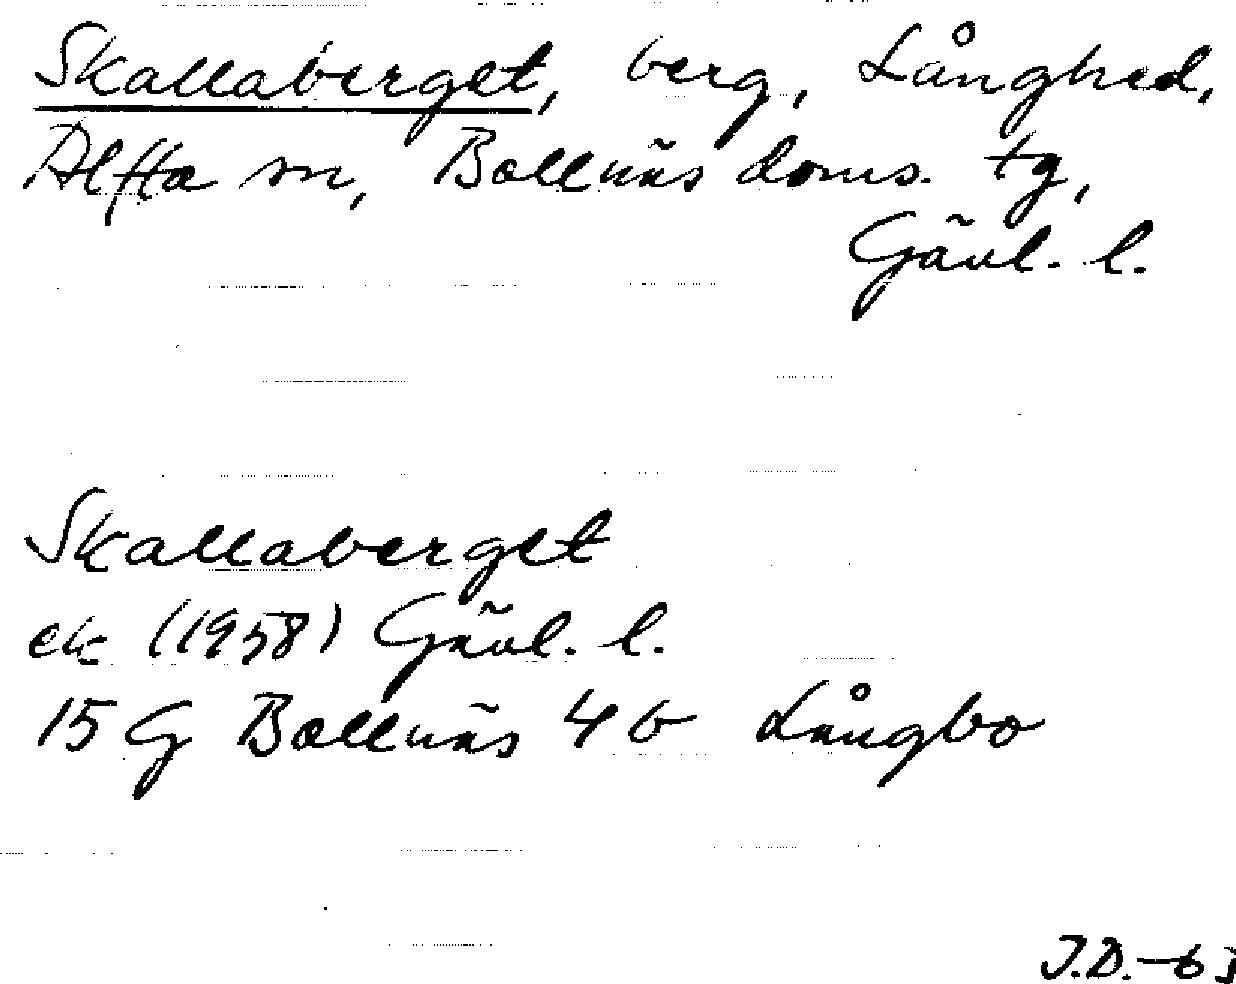 Skallaberget, berg, Långhed,
Alfta sn, Bollnäs doms. tg,
Gävl. l.
Skallaberget
ek (1958) Gävl. l.
15 G Bollnäs 4 b Långbo
J.D.-63